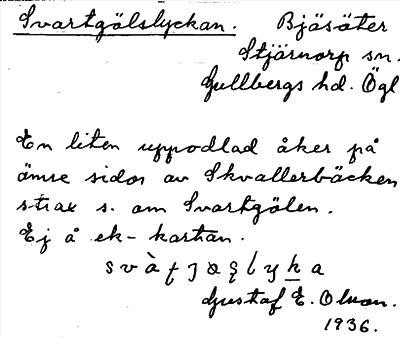 Svartgölslyckan. Bjäsäter
Stjärnorp sn.
Gullbergs hd. Ögl
En liten uppodlad åker på
ömse sidor av Skvallerbäcken
strax s. om Svartgölen.
Ej å ek-kartan.
Gustaf E. Olson.
1936.